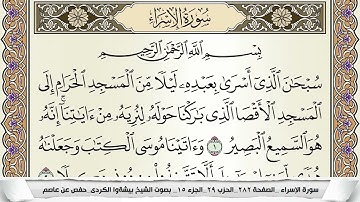 سُورَةُ الإِسْرَاءِ
بِسْمِ اللَّهِ الرَّحْمَٰنِ الرَّحِيمِ
سُبْحَٰنَ الَّذِي أَسْرَىٰ بِعَبْدِهِ لَيْلًا مِّنَ الْمَسْجِدِ الْحَرَامِ إِلَى
الْمَسْجِدِ الْأَقْصَا الَّذِي بَٰرَكْنَا حَوْلَهُ لِنُرِيَهُ مِنْ ءَايَٰتِنَا إِنَّهُ
هُوَ السَّمِيعُ الْبَصِيرُ ١ وَءَاتَيْنَا مُوسَى الْكِتَٰبَ وَجَعَلْنَٰهُ
سورة الإسراء _ الصفحة ٢٨٢_ الحزب ٢٩_ الجزء ١٥_ بصوت الشيخ بيشةوا الكردي_ حفص عن عاصم